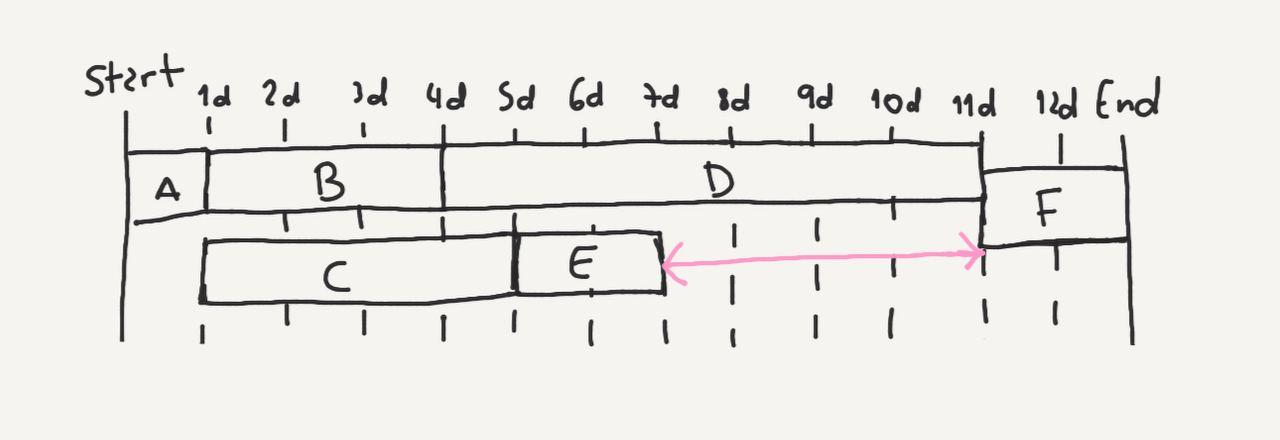 Start 1d 2d 3d 4d 5d 6d 7d 8d 9d 10d 11d 12d End
A B D F
C E